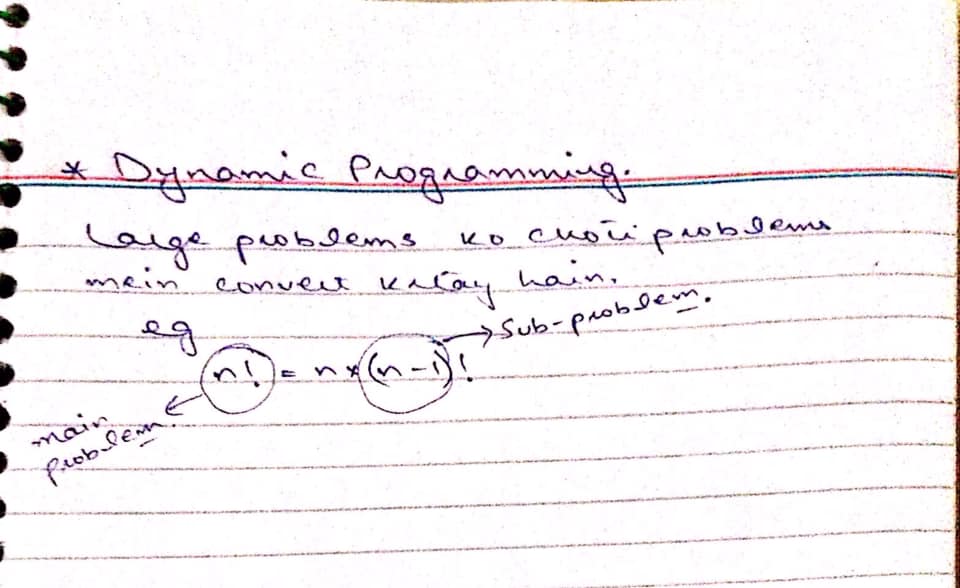 * Dynamic Programming.
Large problems ko choti problems
mein convert krtay hain.
eg
→ Sub-problem.
n! = n * (n-1)!
main
problem.